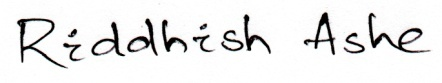 Riddhish Ashe